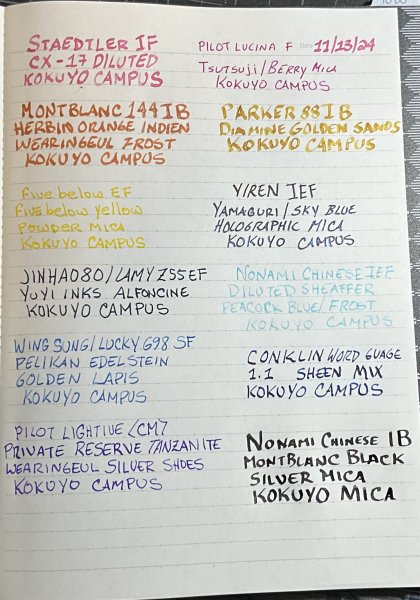 STAEDTLER IF
CX-17 DILUTED
KOKUYO CAMPUS
PILOT LUCINA F Date 11/13/24
TSUTSUJI/BERRY MICA
KOKUYO CAMPUS
MONTBLANC 144 IB
HERBIN ORANGE INDIEN
WEARINGEUL FROST
KOKUYO CAMPUS
PARKER 88 IB
DIAMINE GOLDEN SANDS
KOKUYO CAMPUS
five below EF
five below yellow
POWDER MICA
KOKUYO CAMPUS
YIREN IEF
YAMAGURI/SKY BLUE
HOLOGRAPHIC MICA
KOKUYO CAMPUS
JINHAO80/LAMY Z55EF
YUYI INKS ALFONCINE
KOKUYO CAMPUS
NONAMI CHINESE IEF
DILUTED SHEAFFER
PEACOCK BLUE/FROST
KOKUYO CAMPUS
WING SUNG/LUCKY 698 SF
PELIKAN EDELSTEIN
GOLDEN LAPIS
KOKUYO CAMPUS
CONKLIN WORD GUAGE
1.1 SHEEN MIX
KOKUYO CAMPUS
PILOT LIGHTIVE /CM7
PRIVATE RESERVE TANZANITE
WEARINGEUL SILVER SHOES
KOKUYO CAMPUS
NONAMI CHINESE IB
MONTBLANC BLACK
SILVER MICA
KOKUYO MICA